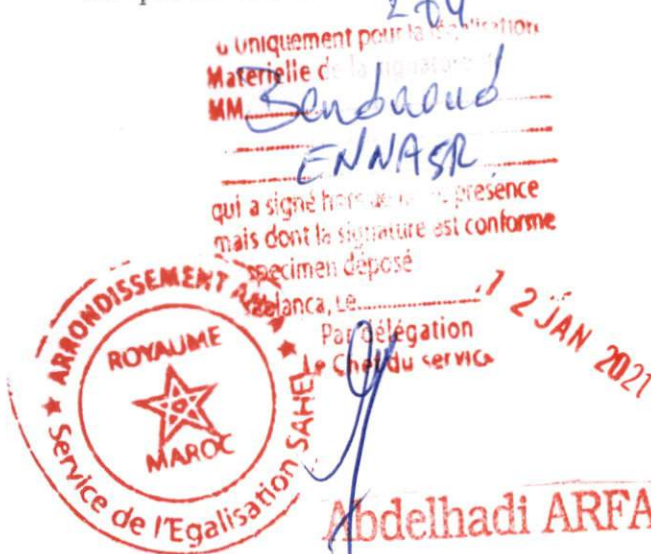 204
u Uniquement pour la légalisation
Matérielle de la signature
MM Bendaoud
ENNASR
qui a signé hors de présence
mais dont la signature est conforme
specimen déposé
Le
12 JAN 2021
Par délégation
Le Chef du service
ARRONDISSEMENT
ROYAUME
MAROC
Service de l'Egalisation SAHEL
Abdelhadi ARFA